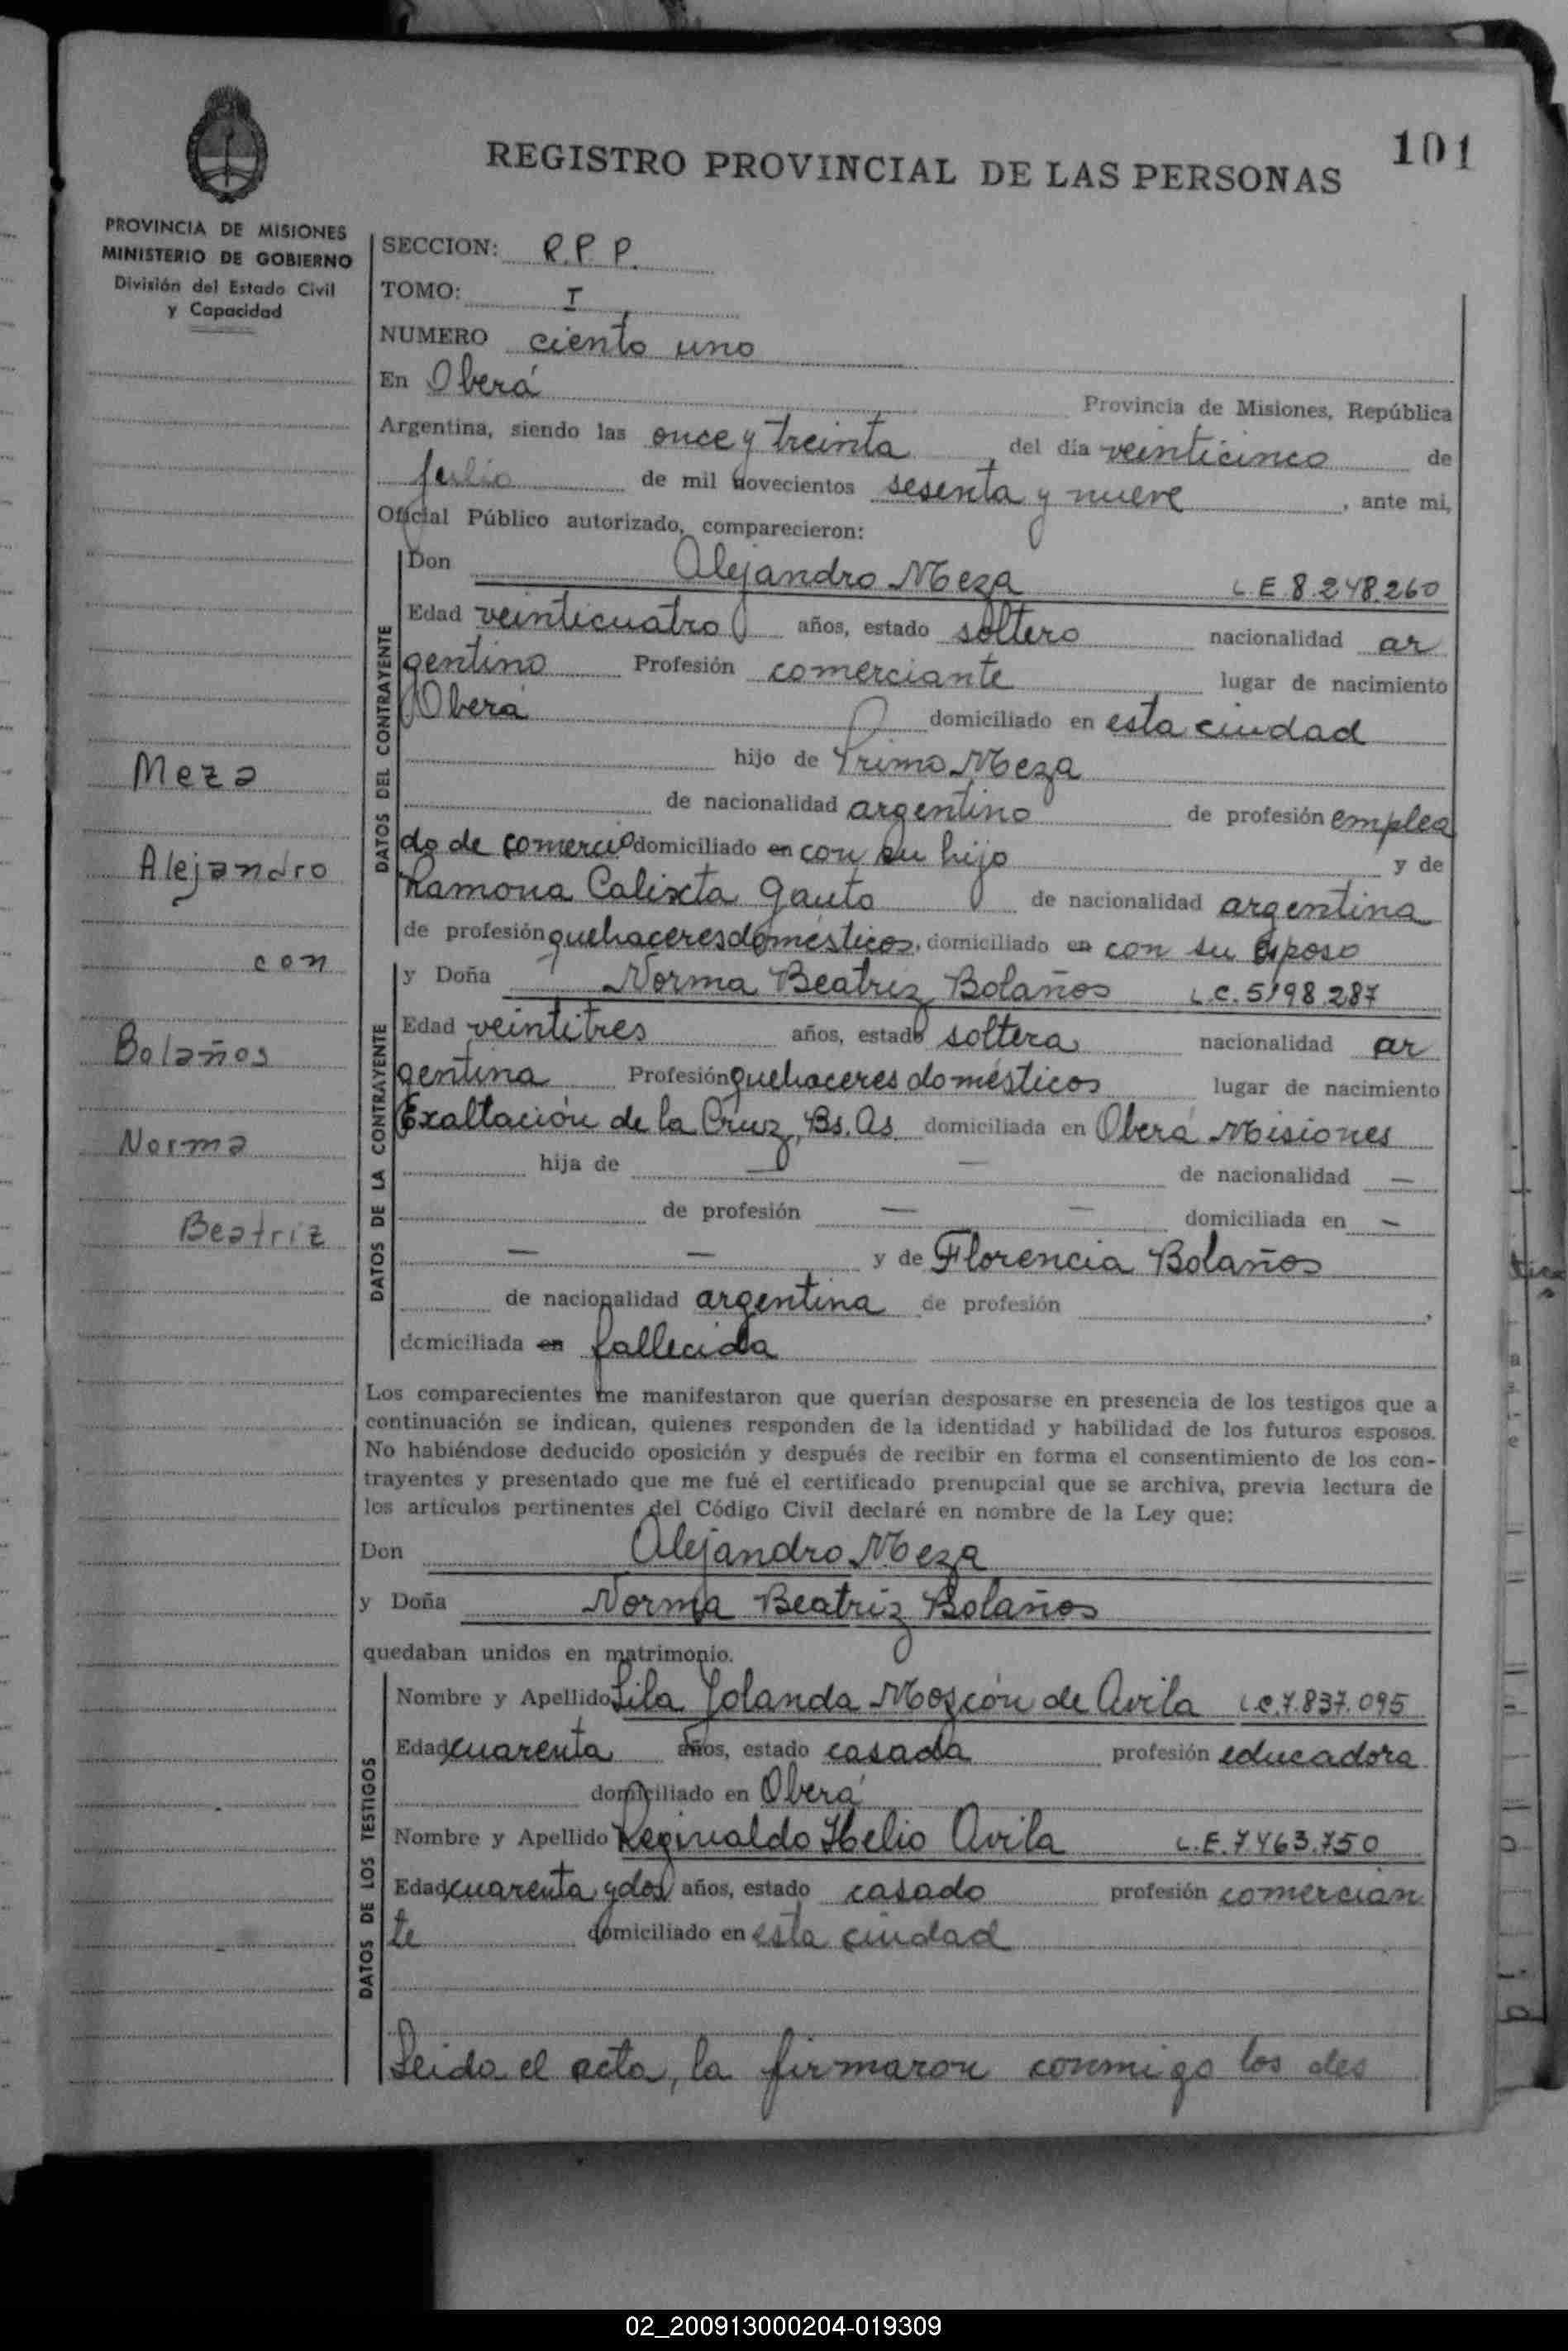 101
REGISTRO PROVINCIAL DE LAS PERSONAS
PROVINCIA DE MISIONES
MINISTERIO DE GOBIERNO
División del Estado Civil
y Capacidad
Meza
Alejandro
con
Bolaños
Norma
Beatriz
SECCION: R.P.P.
TOMO: I
NUMERO ciento uno
En Oberá Provincia de Misiones, República
Argentina, siendo las once y treinta, del día veinticinco de
julio de mil novecientos sesenta y nueve, ante mi,
Oficial Público autorizado, comparecieron:
DATOS DEL CONTRAYENTE
Don Alejandro Meza L.E 8.248.260
Edad veinticuatro años, estado soltero nacionalidad ar
gentino Profesión comerciante lugar de nacimiento
Oberá domiciliado en esta ciudad
hijo de Primo Meza
de nacionalidad argentino de profesión emplea
do de comercio domiciliado en con su hijo y de
Ramona Calixta Gauto de nacionalidad argentina
de profesión quehaceres domésticos, domiciliado en con su esposo
DATOS DE LA CONTRAYENTE
y Doña Norma Beatriz Bolaños L.C. 5198287
Edad veintitres años, estado soltera nacionalidad ar
gentina Profesión quehaceres domésticos lugar de nacimiento
Exaltación de la Cruz, Bs. As. domiciliada en Oberá Misiones
hija de — — de nacionalidad —
de profesión — — domiciliada en —
— — y de Florencia Bolaños
de nacionalidad argentina de profesión ,
domiciliada en fallecida
Los comparecientes me manifestaron que querían desposarse en presencia de los testigos que a
continuación se indican, quienes responden de la identidad y habilidad de los futuros esposos.
No habiéndose deducido oposición y después de recibir en forma el consentimiento de los con-
trayentes y presentado que me fué el certificado prenupcial que se archiva, previa lectura de
los artículos pertinentes del Código Civil declaré en nombre de la Ley que:
Don Alejandro Meza
y Doña Norma Beatriz Bolaños
quedaban unidos en matrimonio.
DATOS DE LOS TESTIGOS
Nombre y Apellido Lila Yolanda Moscón de Avila L.C. 7.837.095
Edad cuarenta años, estado casada profesión educadora
domiciliado en Oberá
Nombre y Apellido Reginaldo Helio Avila L.E. 7.463.750
Edad cuarenta y dos años, estado casado profesión comercian
te domiciliado en esta ciudad
Leida el acta, la firmaron conmigo los des
02_200913000204-019309